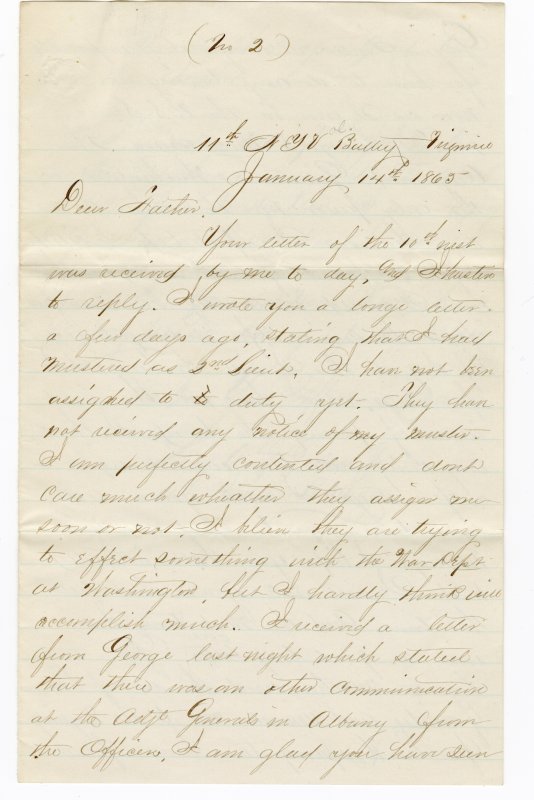 (No 2)
11th N.Y.V. Battery Virginia
January 14th 1865
Dear Father.
Your letter of the 10th inst
was received by me to day, and I hasten
to reply. I wrote you a longe letter
a few days ago, stating that I had
mustered as 2nd Lieut. I have not been
assigned to duty yet. They have
not received any notice of my muster.
I am perfectly contented and dont
care much wheather they assign me
soon or not. I believe they are trying
to effect something with the War Dept
at Washington, but I hardly think will
accomplish much. I received a letter
from George last night which stated
that there was an other communication
at the Adjt Generals in Albany from
the Officers. I am glad you have seen